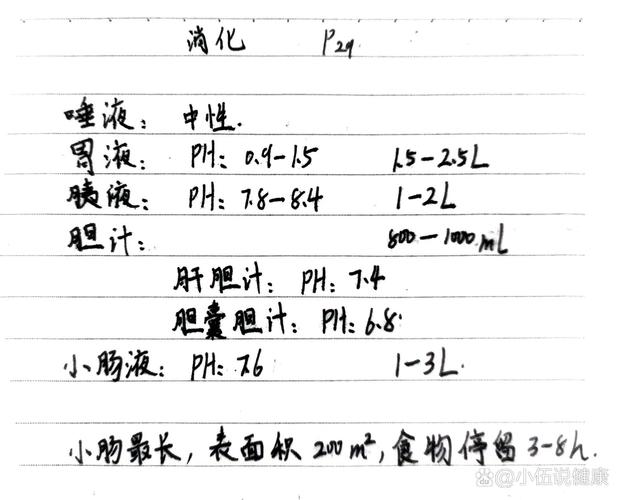 消化 P29
唾液：中性.
胃液：PH：0.9-1.5 1.5-2.5L
胰液：PH：7.8-8.4 1-2L
胆汁： 800-1000mL
肝胆汁：PH：7.4
胆囊胆汁：PH：6.8
小肠液：PH：7.6 1-3L.
小肠最长，表面积200m²，食物停留3-8h.
@小伍说健康